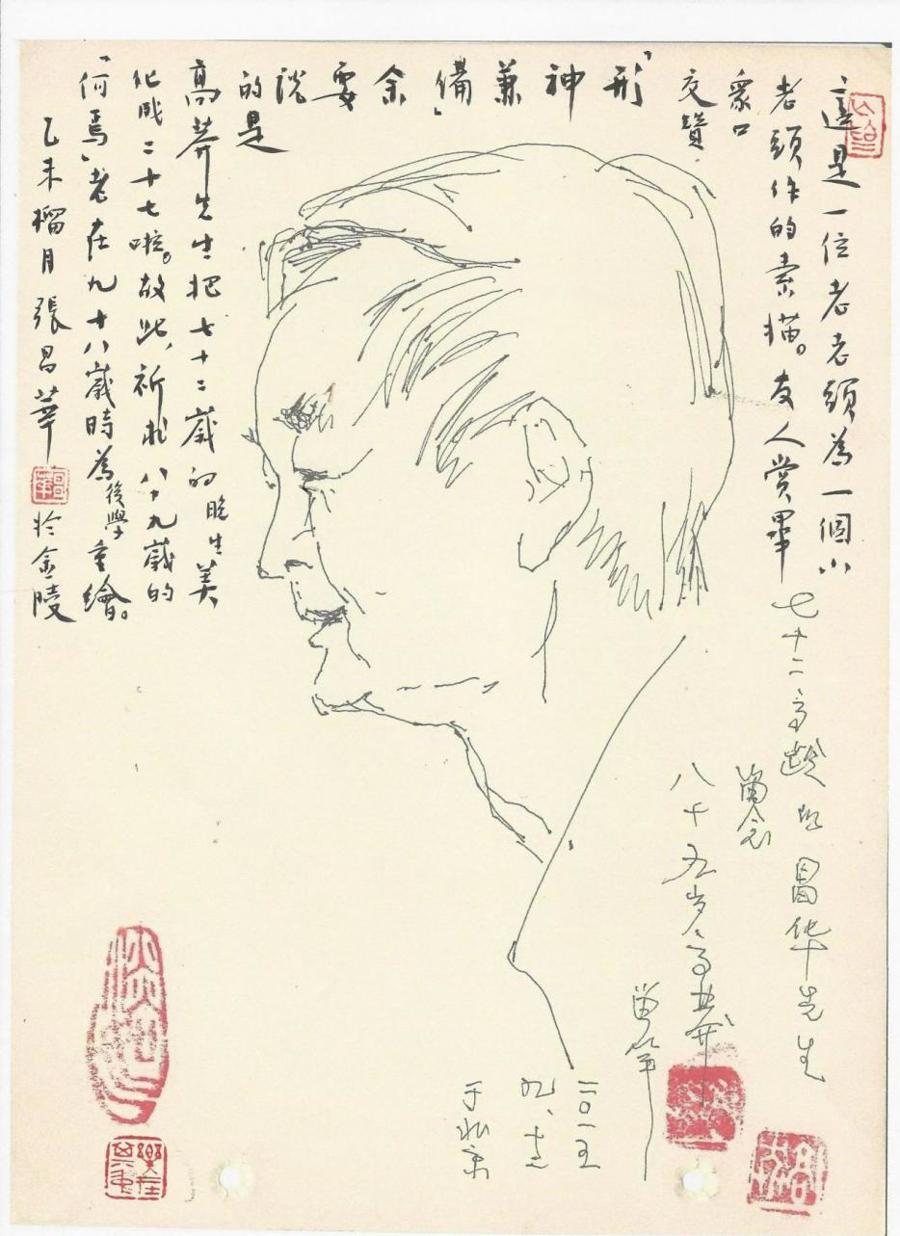 這是一位老老頭為一個小
老頭作的素描。友人賞畢
眾口
交贊
「形神兼備」余要說
的是
高莽先生把七十二歲的晚生美
化成二十七啦。故此，祈求八十九歲的
「何焉」老在九十八歲時為後學重繪。
乙未榴月張昌華
於金陵
七十二高龄的
昌华先生
留念
八十五岁高莽
留笔
二〇一五
于北京